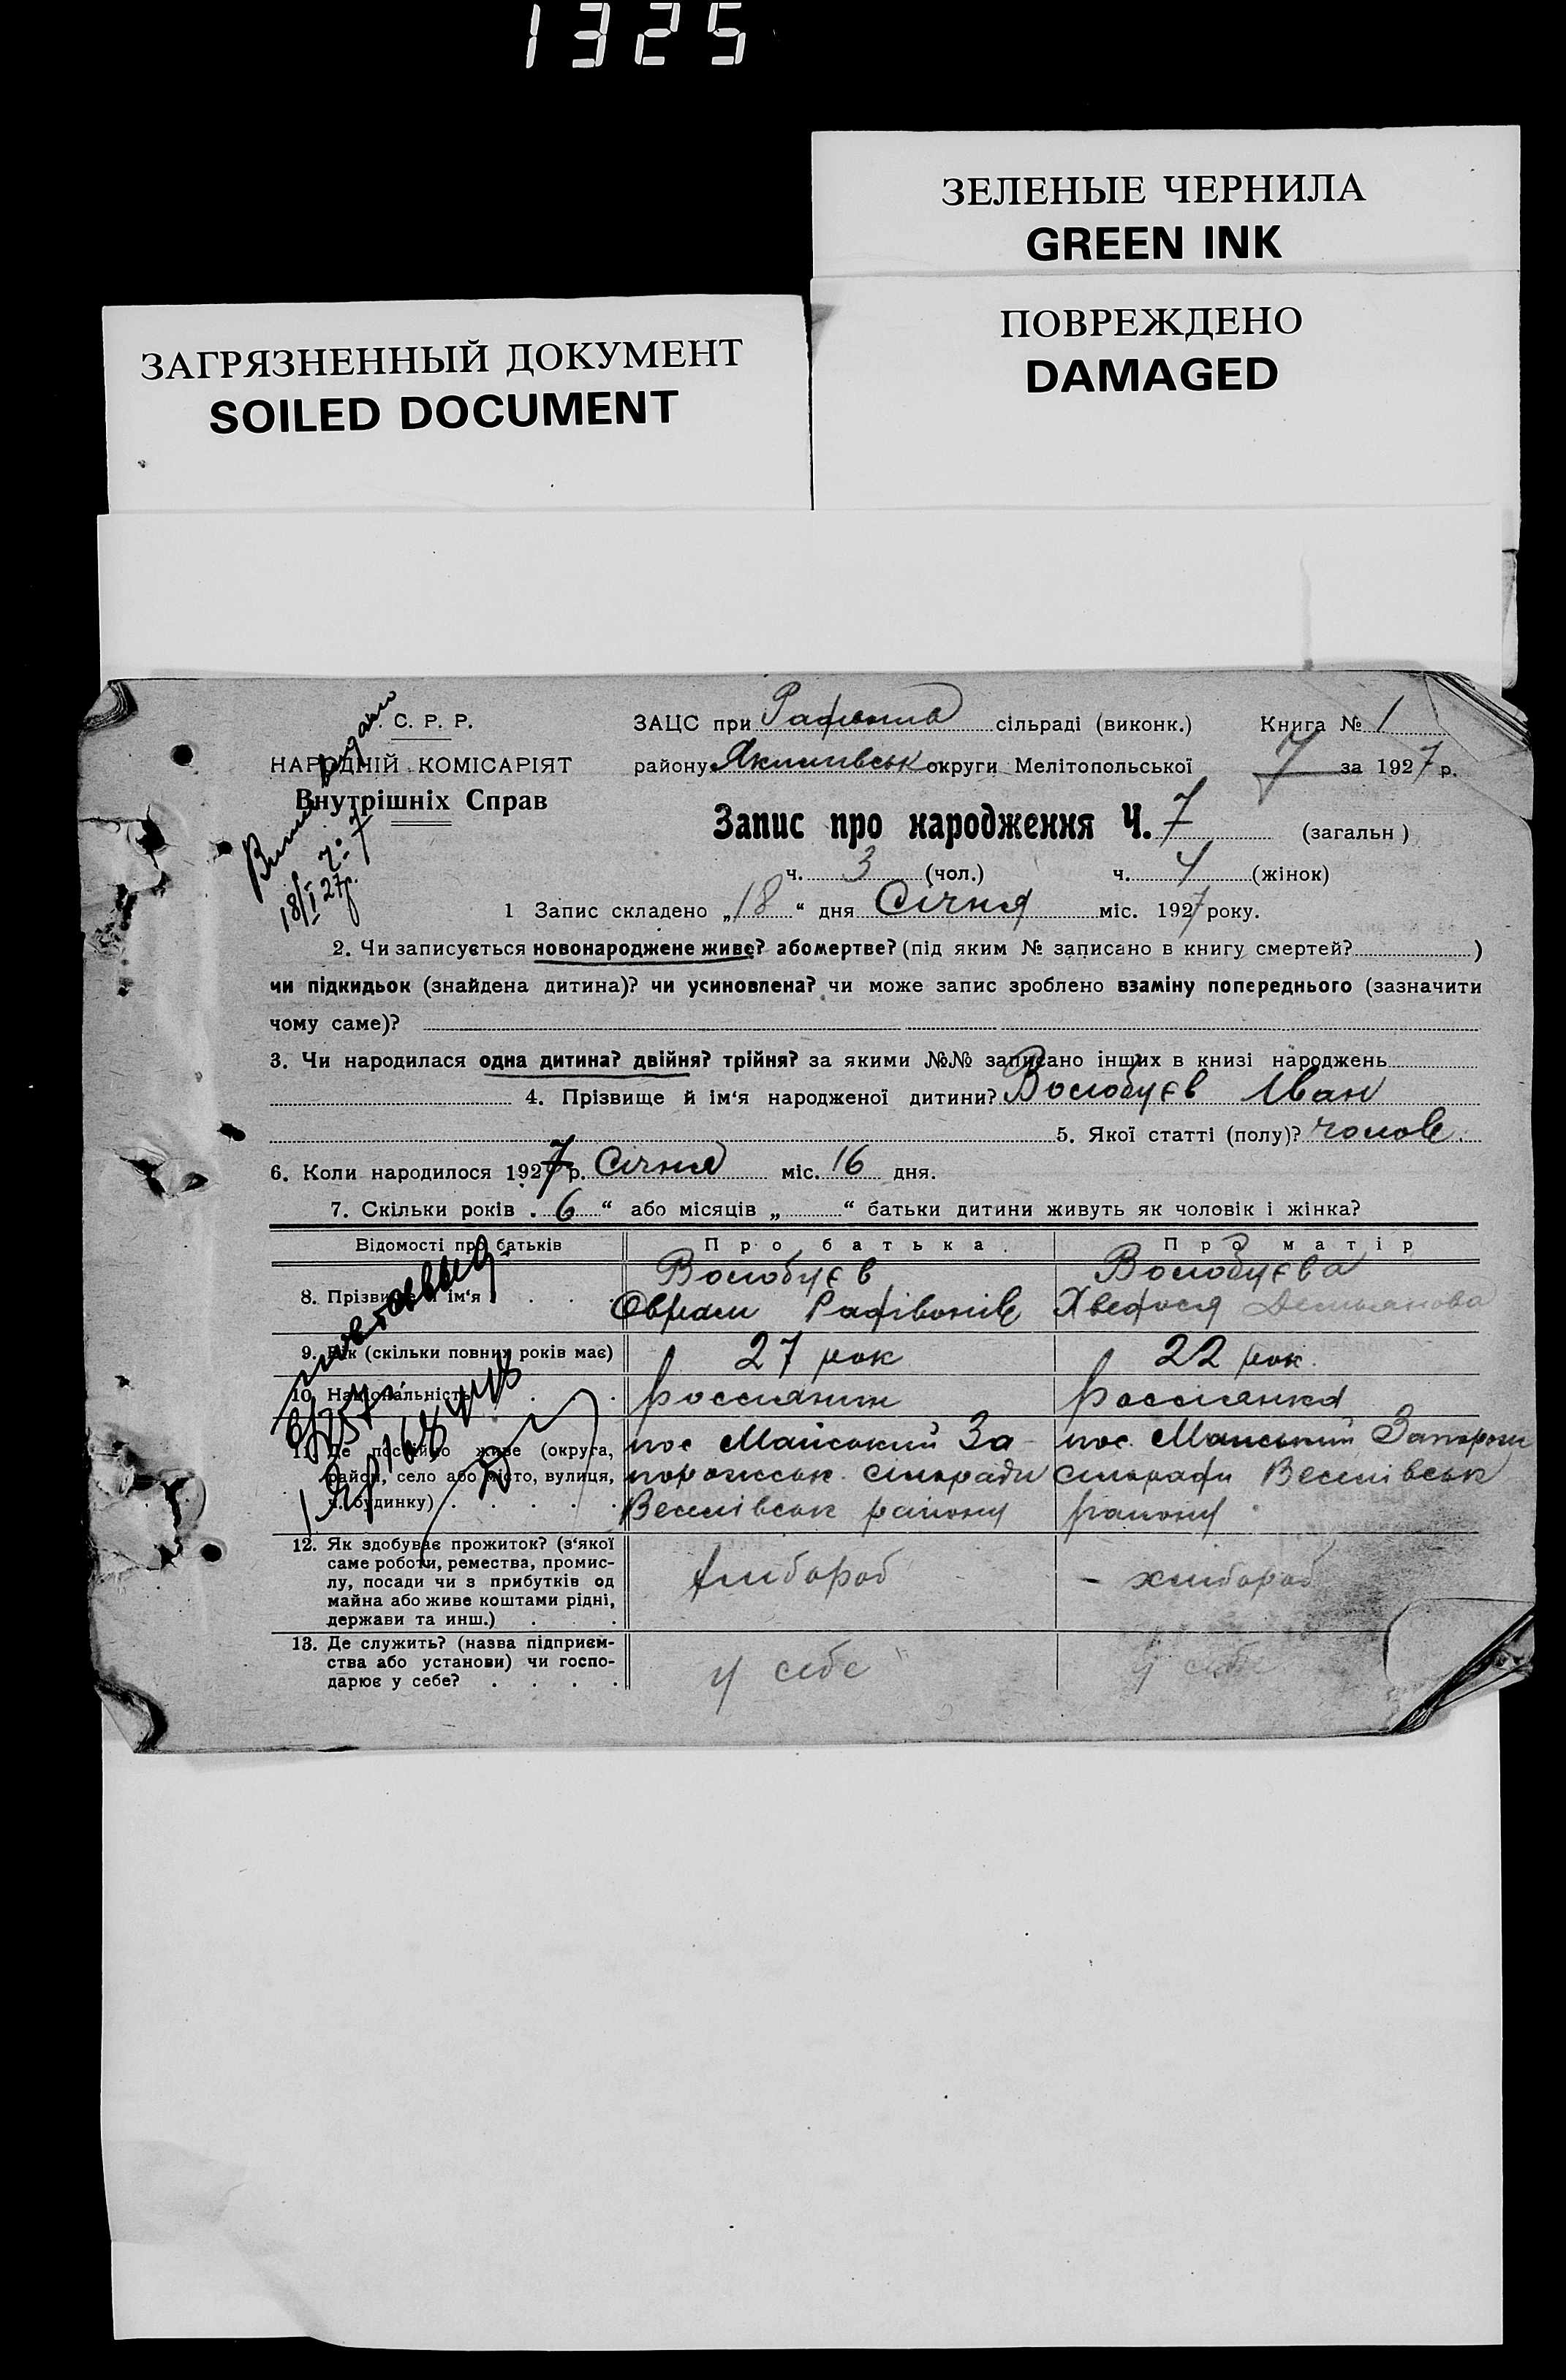 1325
ЗЕЛЕНЫЕ ЧЕРНИЛА
GREEN INK
ПОВРЕЖДЕНО
DAMAGED
ЗАГРЯЗНЕННЫЙ ДОКУМЕНТ
SOILED DOCUMENT
С. Р. Р.
НАРОДНІЙ КОМІСАРІЯТ
Внутрішніх Справ
18/I 27р.
ЗАЦС при сільраді (виконк.) Книга № 1
району Якимівськ округи Мелітопольської 7 за 1927 р.
Запис про народження Ч. 7 (загальн)
ч. 3 (чол.) ч. 4 (жінок)
1 Запис складено „18“ дня Січня міс. 1927 року.
2. Чи записується новонароджене живе? або мертве? (під яким № записано в книгу смертей? )
чи підкидьок (знайдена дитина)? чи усиновлена? чи може запис зроблено взаміну попереднього (зазначити
чому саме)?
3. Чи народилася одна дитина? двійня? трійня? за якими №№ записано інших в книзі народжень
4. Прізвище й ім‘я народженої дитини? Волобуєв Іван
5. Якої статті (полу)? чолов.
6. Коли народилося 1927 р. Січня міс. 16 дня.
7. Скільки років „6“ або місяців „ “ батьки дитини живуть як чоловік і жінка?
Відомості про батьків Про батька. Про матір
8. Прізвище й ім‘я Волобуєв Волобуєва
Оврам Рафівонів Хведося Демьянова
9. Вік (скільки повних років має) 27 рок 22 рок.
10. Національність россиянин россиянка
11. Де постійно живе (округа, район, село або місто, вулиця, ч. будинку)
пос Майський За-
порожськ. сільради
Веселівськ району
пос. Майський Запорож
сільради Веселівськ
району
12. Як здобуває прожиток? (з‘якої
саме роботи, ремества, промис-
лу, посади чи з прибутків од
майна або живе коштами рідні,
держави та инш.)
хлібороб - хлібороб
13. Де служить? (назва підприєм-
ства або установи) чи госпо-
дарює у себе?
у себе у себе